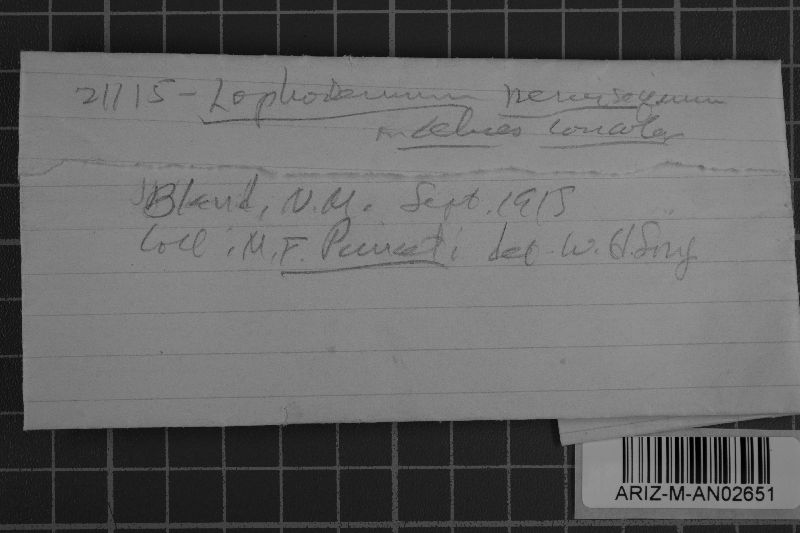 21115 - Lophodermium nervisequum
on Abies concolor
Bland, N.M. Sept. 1915
Coll; M. F. ; det. W. H. Long
ARIZ-M-AN02651